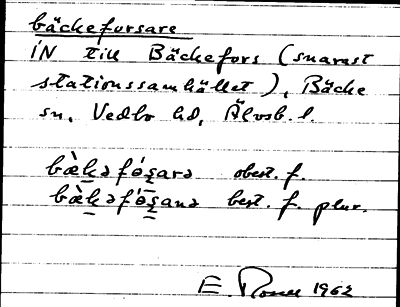 bäckeforsare
IN till Bäckefors (snarast
stationssamhället), Bäcke
sn, Vedbo hd, Älvsb. l.
bὰḵəfo̕s̱arə obest. f.
bὰḵəfo̕s̱anə best. f. plur.
E 1962